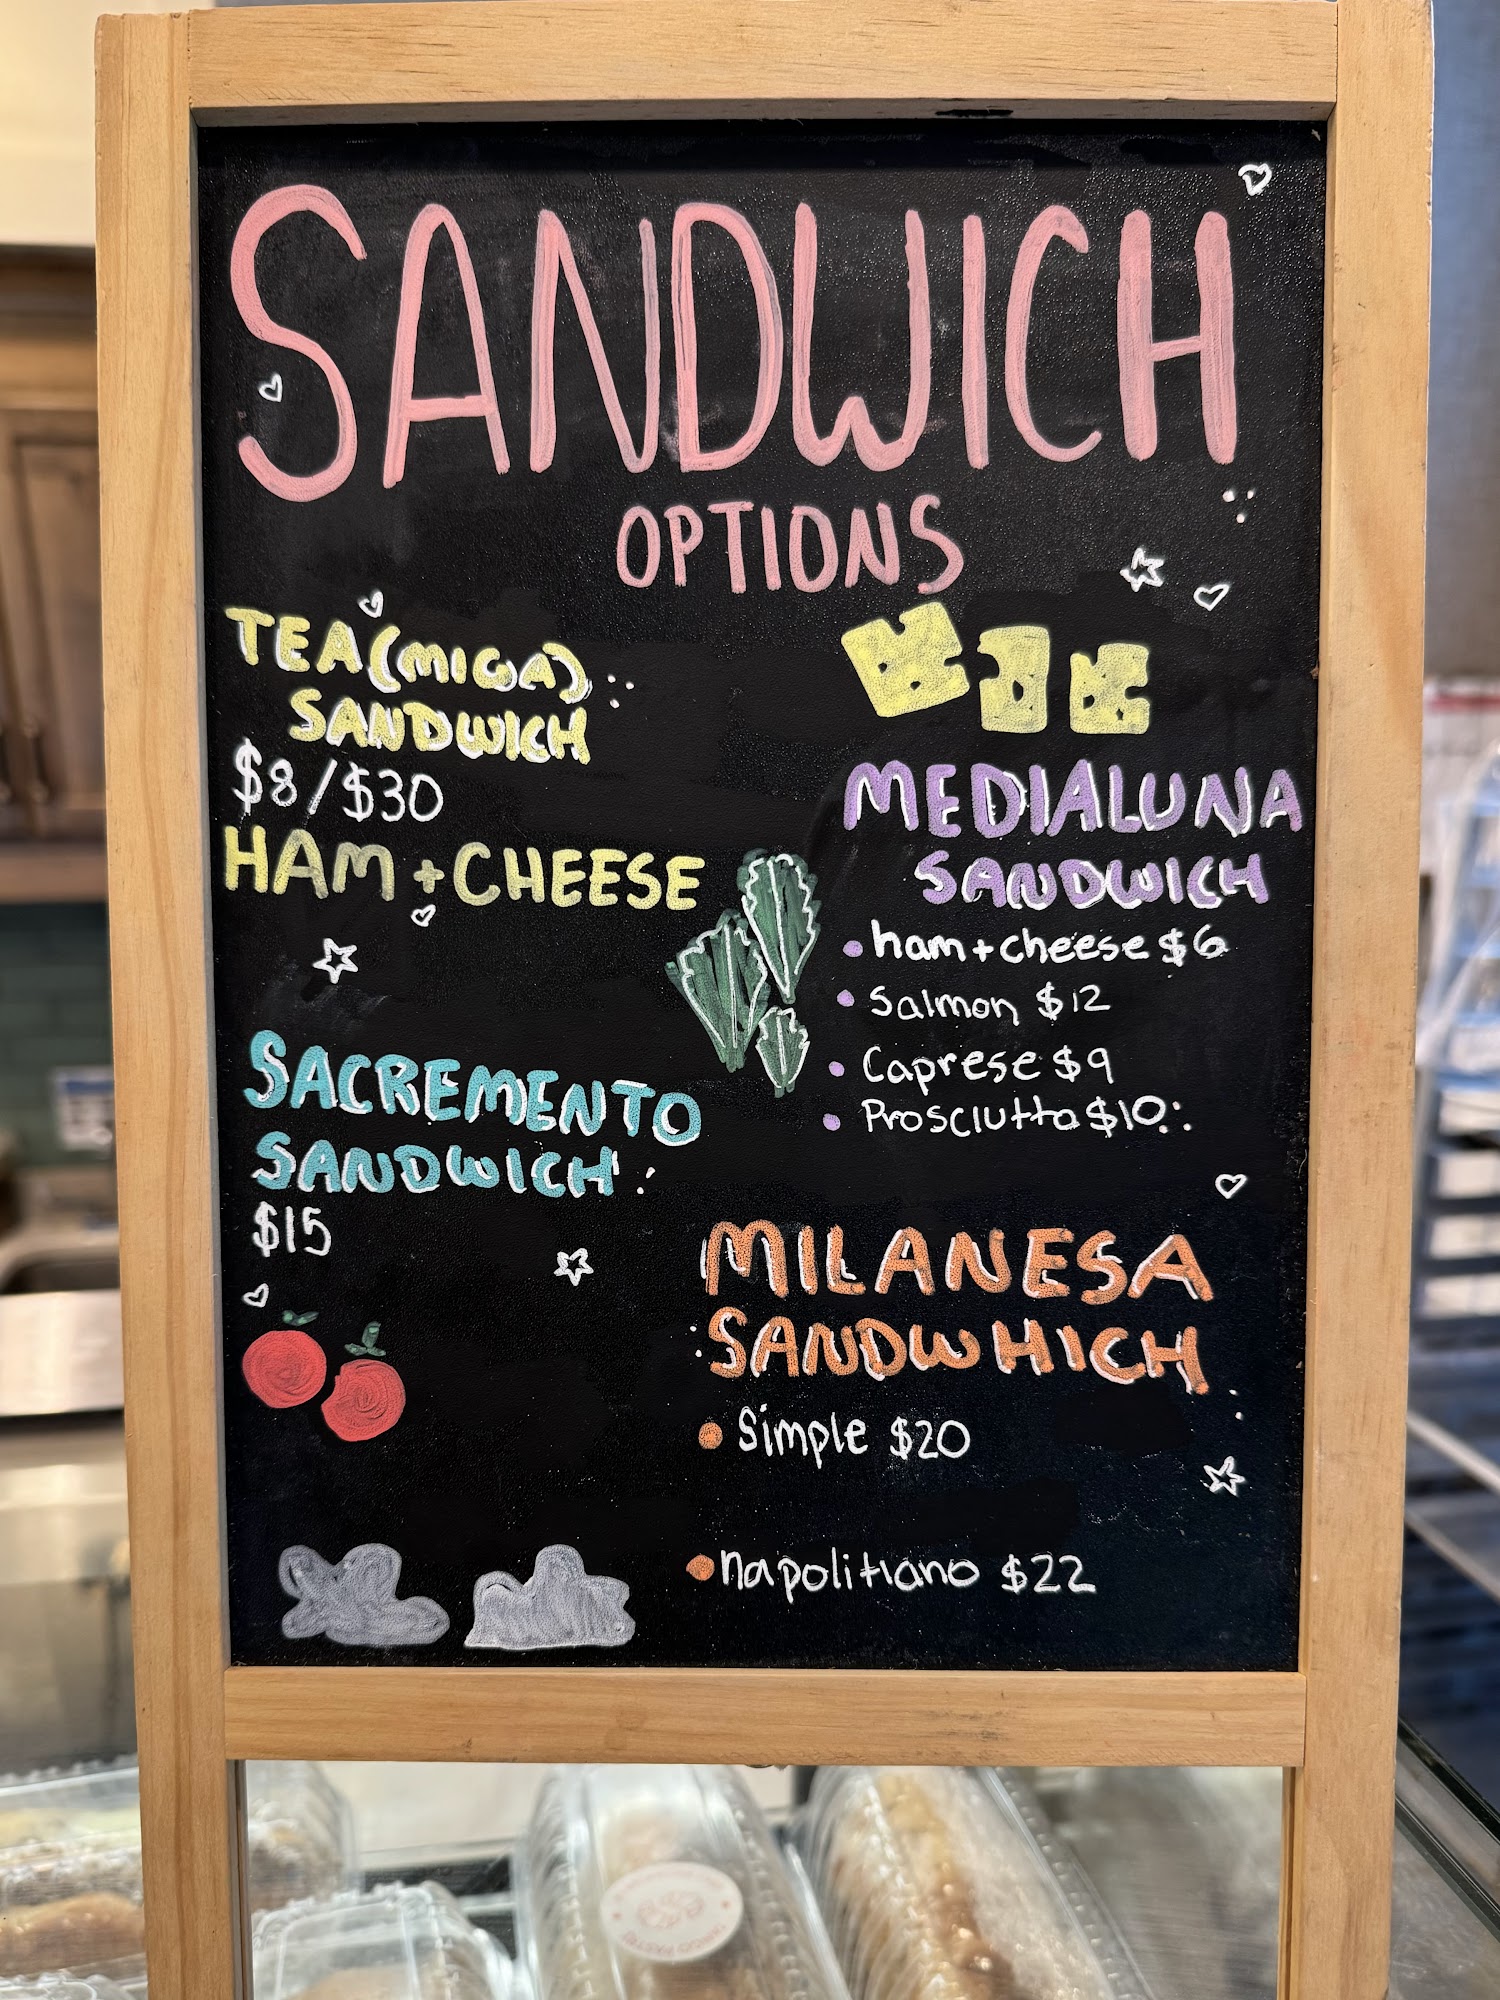 SANDWICH
OPTIONS
TEA (MIGA)
SANDWICH
$8/$30
HAM + CHEESE
SACREMENTO
SANDWICH
$15
MEDIALUNA
SANDWICH
• ham + cheese $6
• Salmon $12
• Caprese $9
• Prosciutto $10
MILANESA
SANDWHICH
• Simple $20
• napolitiano $22